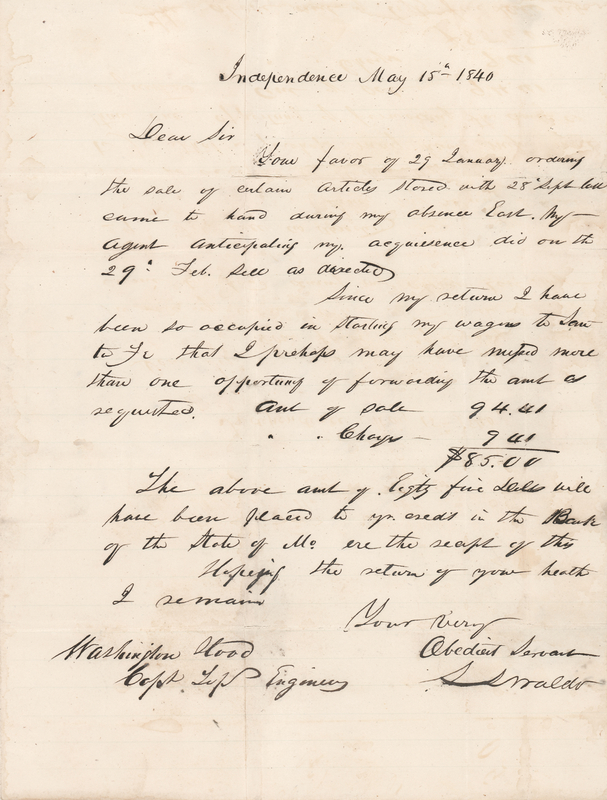 Independence May 15th 1840
Dear Sir
Your favor of 29 January ordering
the sale of certain articles stored with 28th Sept
came to hand during my absence East. My
agent anticipating my acquiesence did on the
29th Feb. sell as directed
Since my return I have
been so occupied in starting my wagons to San
ta Fe that I prehaps may have missed more
than one opportuny of forwarding the amt as
requested. Amt of sale 94.41
" " Charges — 9 41
$85.00
The above amt of Eighty five Dolls will
have been placed to yr. credit in the Bank
of the State of Mo. ere the recept of this
Hopeing the return of your health
I remain
Your Very
Washington Hood Obedient Servant
Capt. Top Engineers Waldo